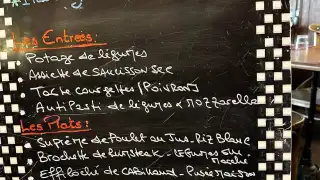 Les Entrées:
- Potage de légumes
- Assiette de SAUCISSON SEC
- Tarte courgettes/Poivrons
- Antipasti de légumes & mozzarella
Les Plats:
- Suprême de Poulet au Jus - Riz Blanc
- Brochette de Rumsteak - Légumes du marché
- Effiloché de CABILLAUD - Purée maison